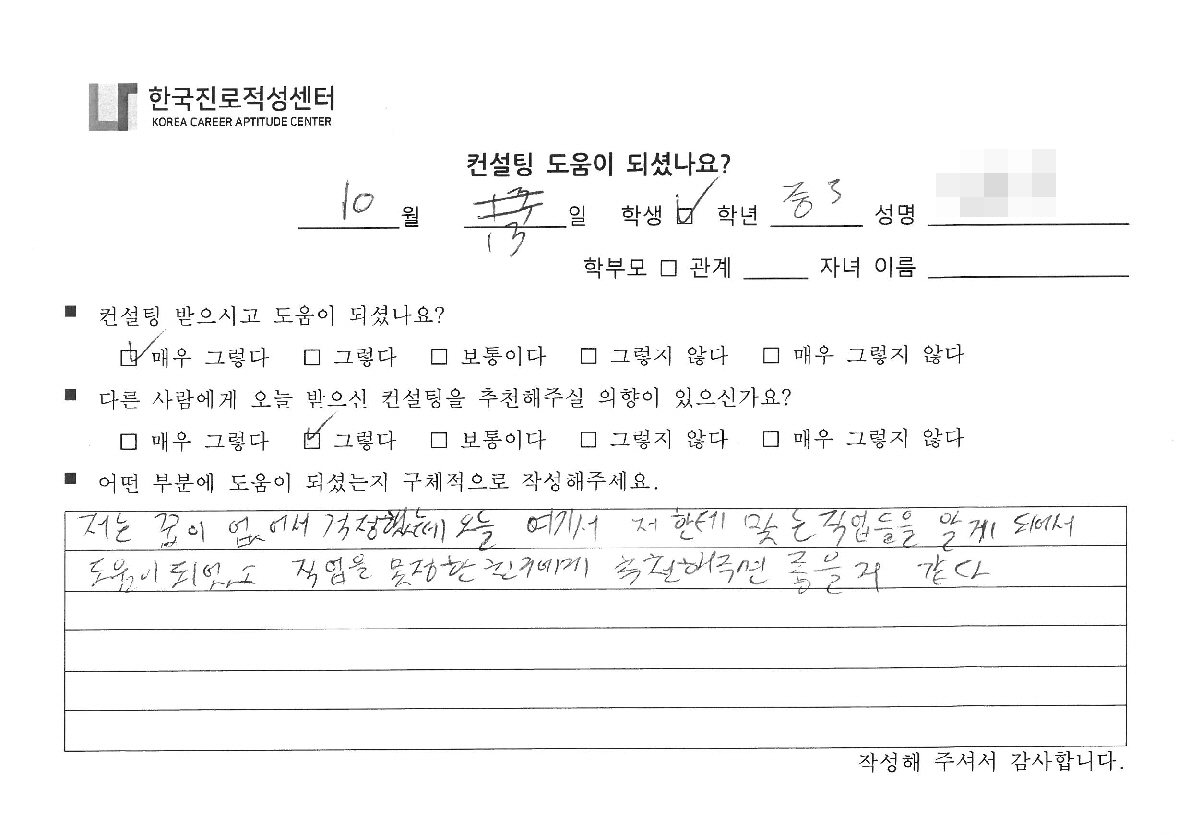 한국진로적성센터
KOREA CAREER APTITUDE CENTER
컨설팅 도움이 되셨나요?
10 월 13 일 학생 ☑ 학년 중3 성명
학부모 □ 관계 자녀 이름
■ 컨설팅 받으시고 도움이 되셨나요?
☑ 매우 그렇다 □ 그렇다 □ 보통이다 □ 그렇지 않다 □ 매우 그렇지 않다
■ 다른 사람에게 오늘 받으신 컨설팅을 추천해주실 의향이 있으신가요?
□ 매우 그렇다 ☑ 그렇다 □ 보통이다 □ 그렇지 않다 □ 매우 그렇지 않다
■ 어떤 부분에 도움이 되셨는지 구체적으로 작성해주세요.
저는 꿈이 없어서 걱정했는데 오늘 여기서 저한테 맞는 직업들을 알게 되에서
도움이 되었고 직업을 못정한 친구에게 추천해주면 좋을거 같다
작성해 주셔서 감사합니다.